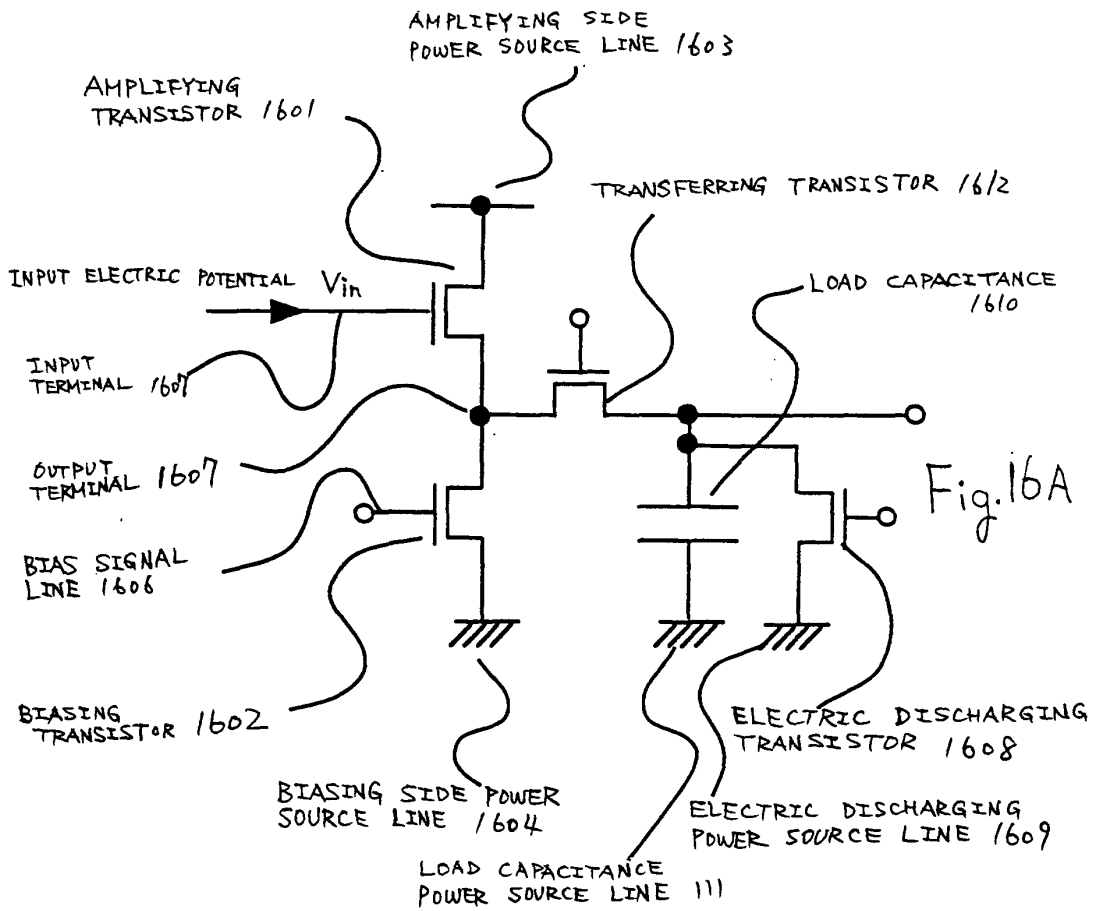 AMPLIFYING SIDE
POWER SOURCE LINE 1603
AMPLIFYING
TRANSISTOR 1601
TRANSFERRING TRANSISTOR 1612
INPUT ELECTRIC POTENTIAL Vin
LOAD CAPACITANCE
1610
INPUT
TERMINAL 1607
OUTPUT
TERMINAL 1607
Fig.16A
BIAS SIGNAL
LINE 1606
BIASING
TRANSISTOR 1602
ELECTRIC DISCHARGING
TRANSISTOR 1608
BIASING SIDE POWER
SOURCE LINE 1604
ELECTRIC DISCHARGING
POWER SOURCE LINE 1609
LOAD CAPACITANCE
POWER SOURCE LINE 111